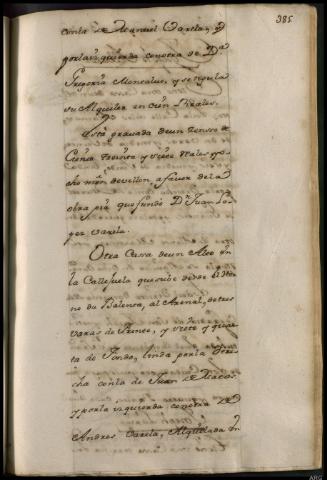 385
con la de Manuel Varela, y
por la izquierda con otra de Dª
Gregoria Moscalue, y se regula
su Alquiler en cien Reales.
Está gravada de un Censo de
Ciento treinta y siete reales y o-
cho mrs. de vellon, a favor de la
obra pia que fundó Dn. Juan Lo-
pez Varela.
Otra Casa de un Alto en
la Callejuela que sube desde el
de Balenza, al Arenal, de tres
varas de frente, y siete y quar-
ta de fondo, linda por la Dere-
cha con la de Juan de Macas
y por la izquierda con otra de
Andres Varela, Alquilada en
ARG